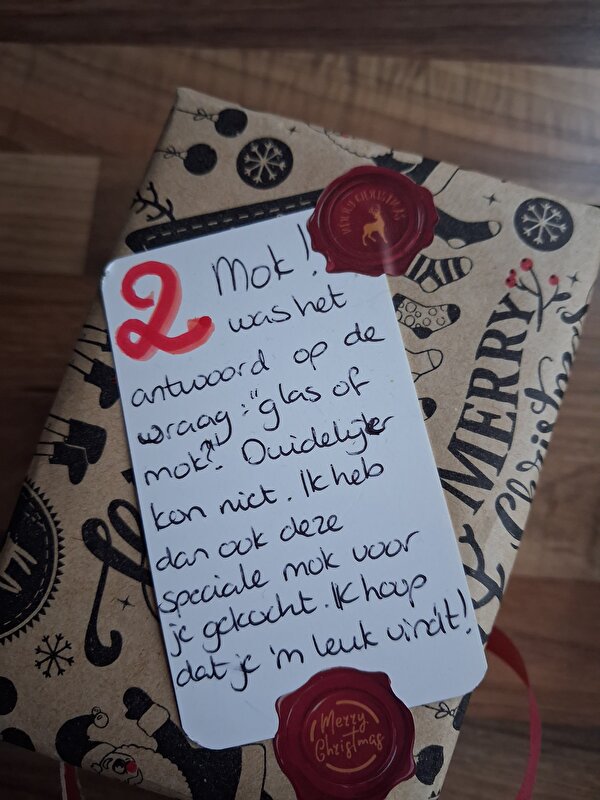 MERRY CHRISTMAS
2 Mok!
was het
antwoord op de
vraag: "glas of
mok?" Duidelijker
kon niet. Ik heb
dan ook deze
speciale mok voor
je gekocht. Ik hoop
dat je 'm leuk vindt!
Merry
Christmas
MERRY
Christmas